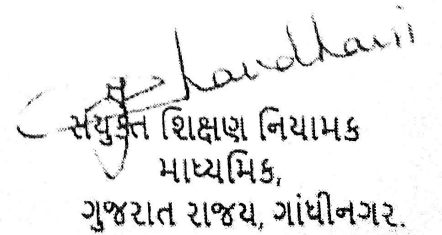 સંયુક્ત શિક્ષણ નિયામક
માધ્યમિક,
ગુજરાત રાજય, ગાંધીનગર.